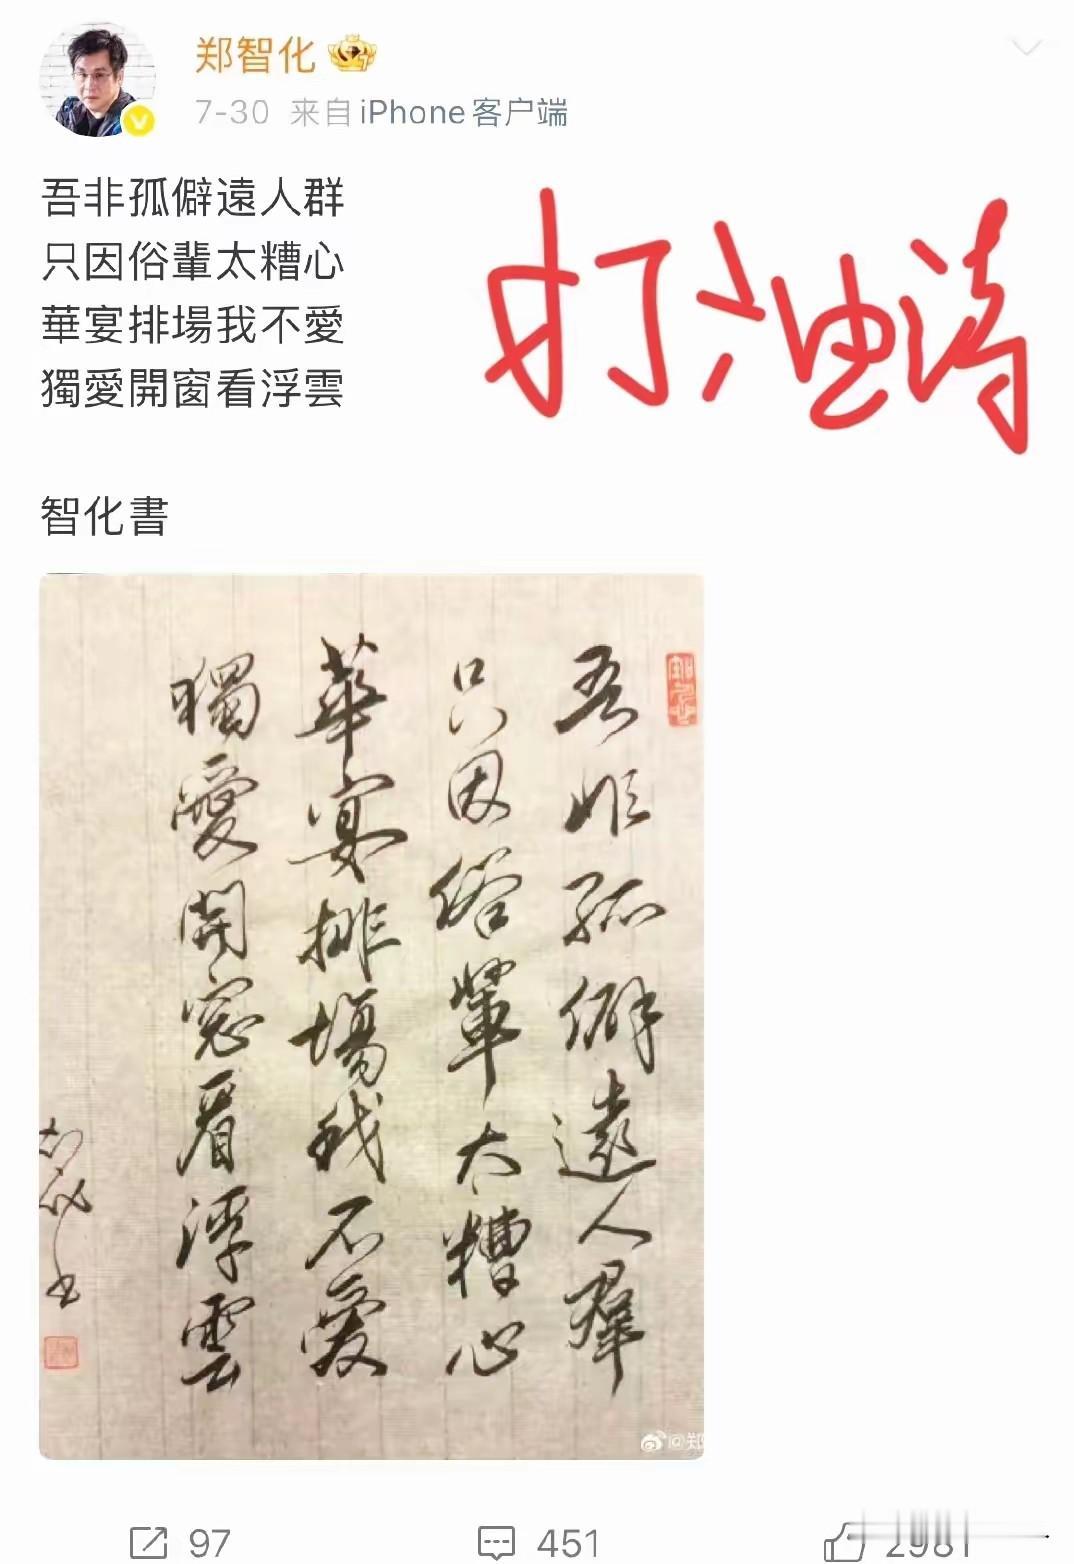 郑智化
7-30 来自 iPhone客户端
吾非孤僻遠人群
只因俗輩太糟心
華宴排場我不愛
獨愛開窗看浮雲
智化書
打油诗
吾非孤僻遠人羣
只因俗輩太糟心
華宴排場我不愛
獨愛開窓看浮雲
智化书
@郑
97
451
2981